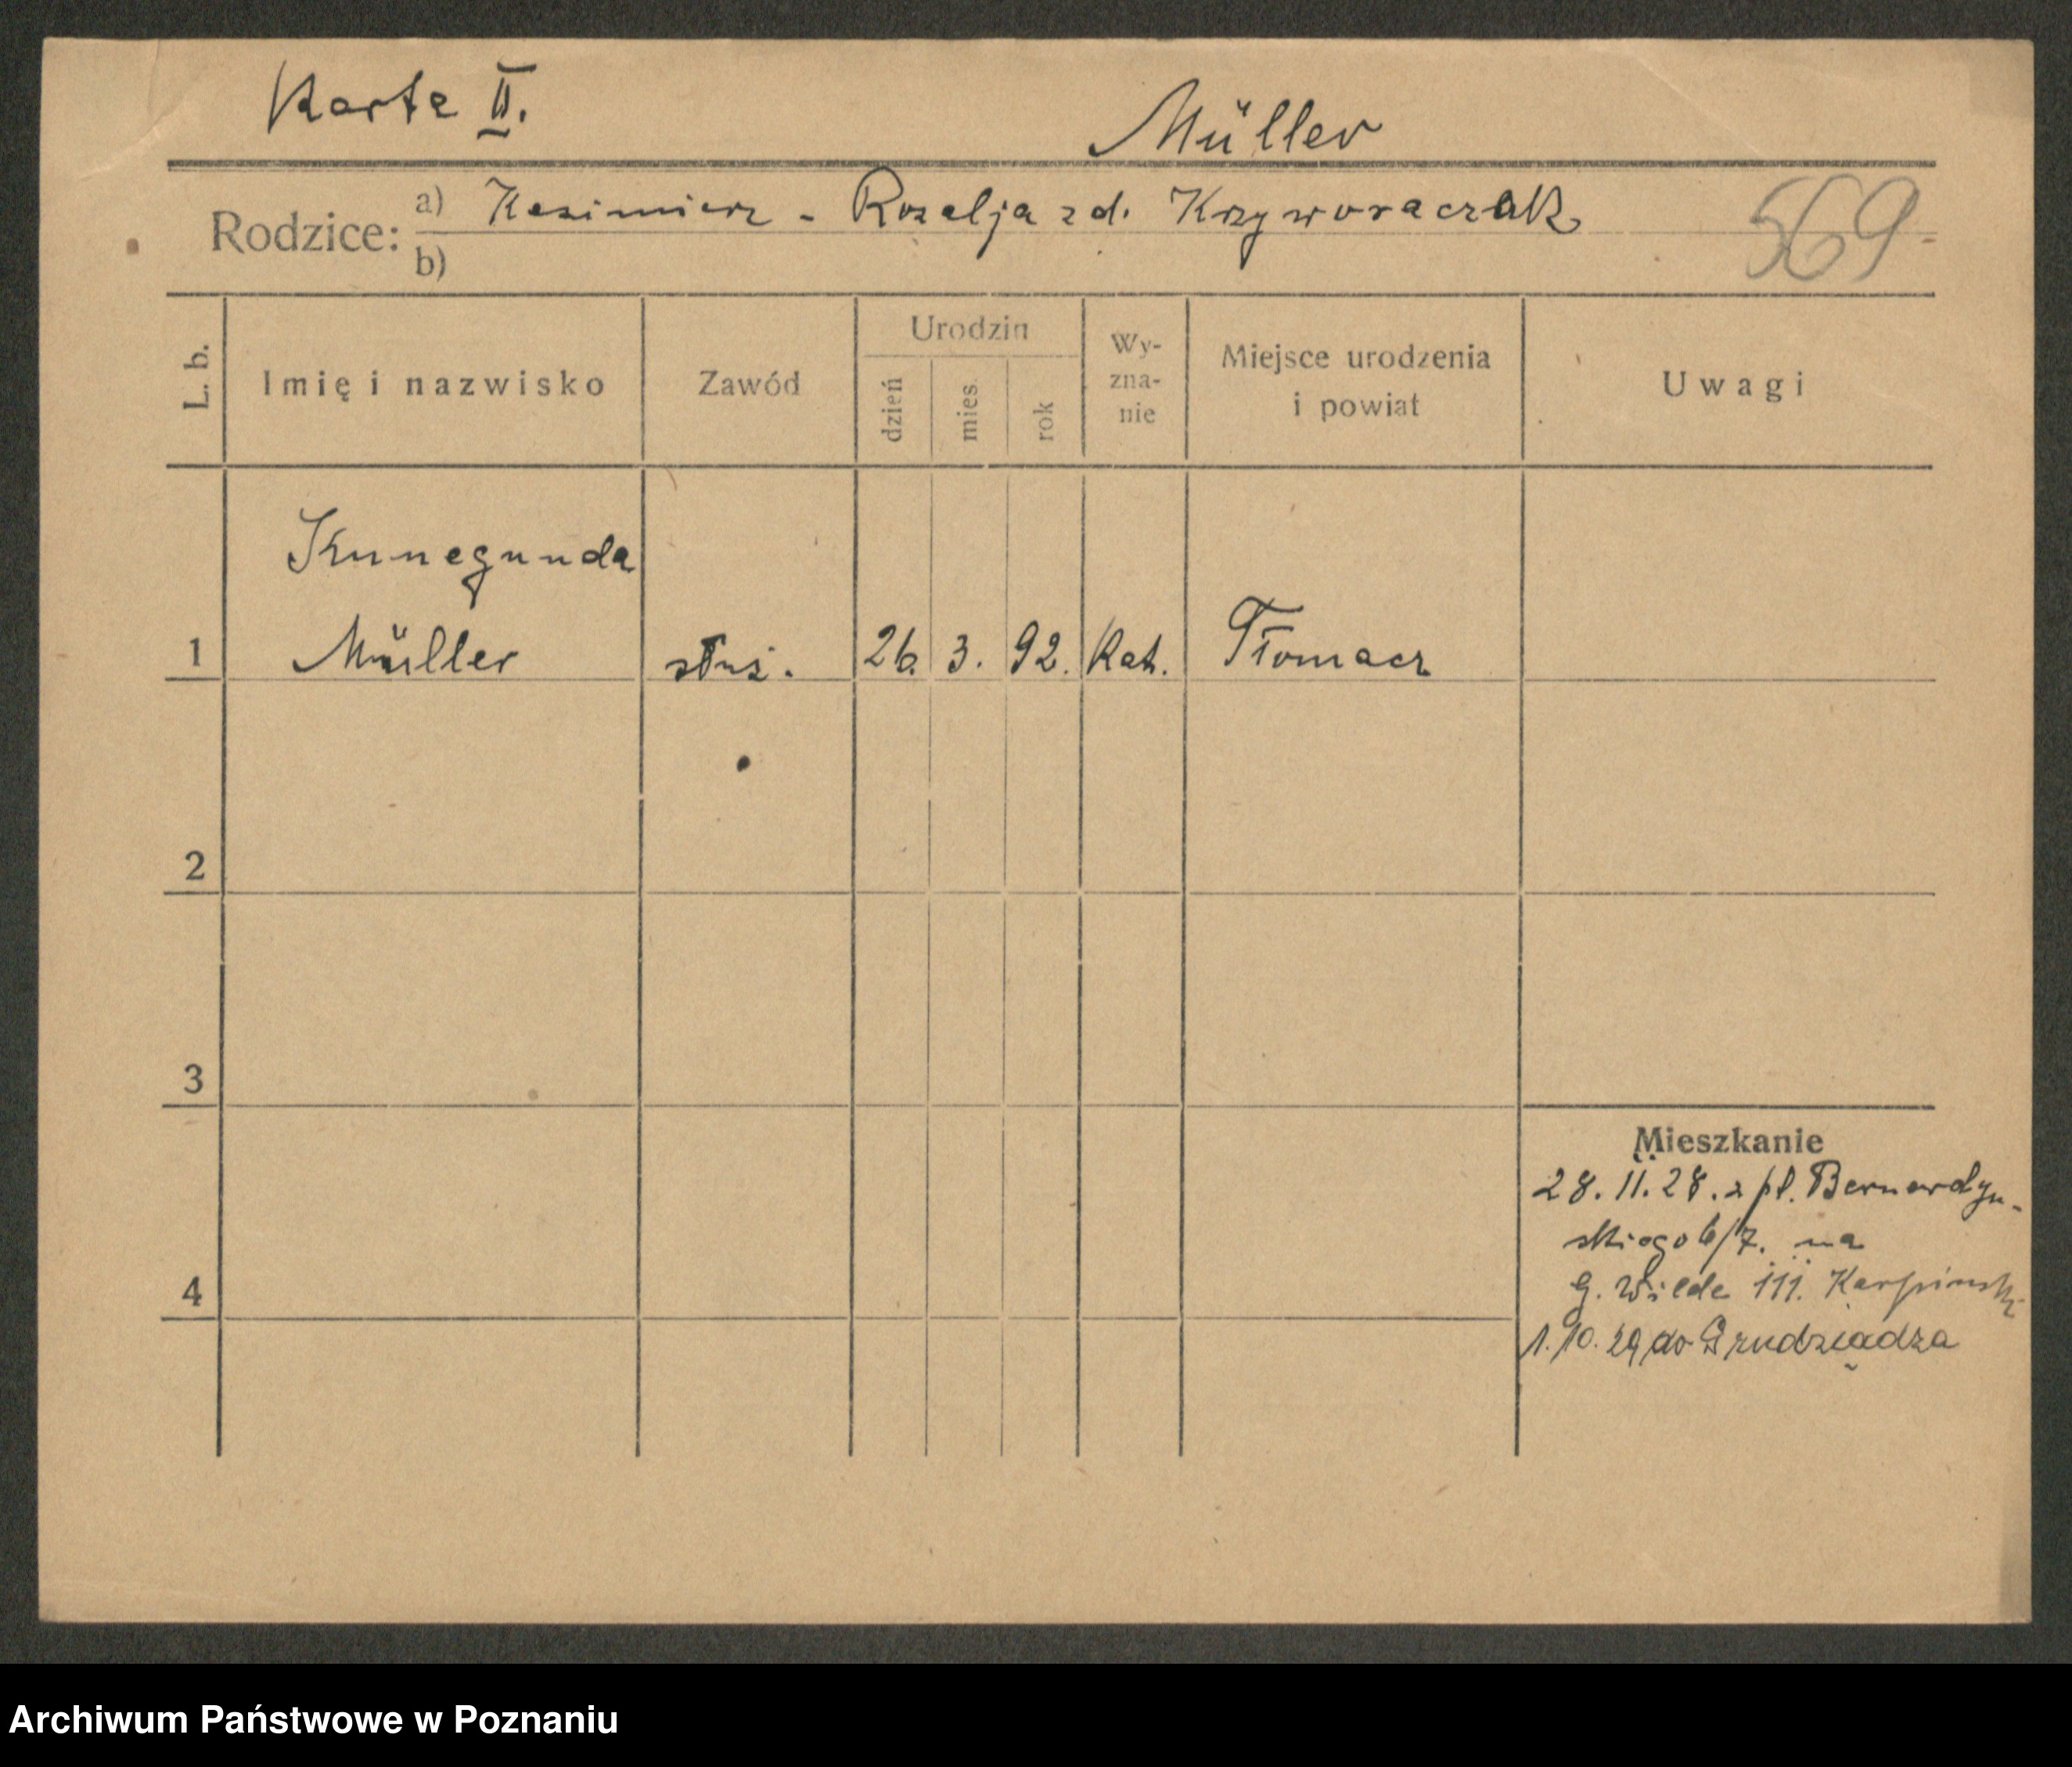 Karta II.
Müller
Rodzice: a) Kazimierz - Rozalja zd. Krzyworaczak
b)
569
L. b. Imię i nazwisko Zawód Urodzin dzień mies. rok Wyznanie Miejsce urodzenia i powiat Uwagi
Kunegunda
1 Müller służ. 26. 3. 92. Kat. Tłomacz
2
3
Mieszkanie
28. 11. 28. z pl. Bernardyn-
skiego 6/7. na
4 g. Wilda 111. Karpiński
1. 10. 29 do Grudziądza
Archiwum Państwowe w Poznaniu